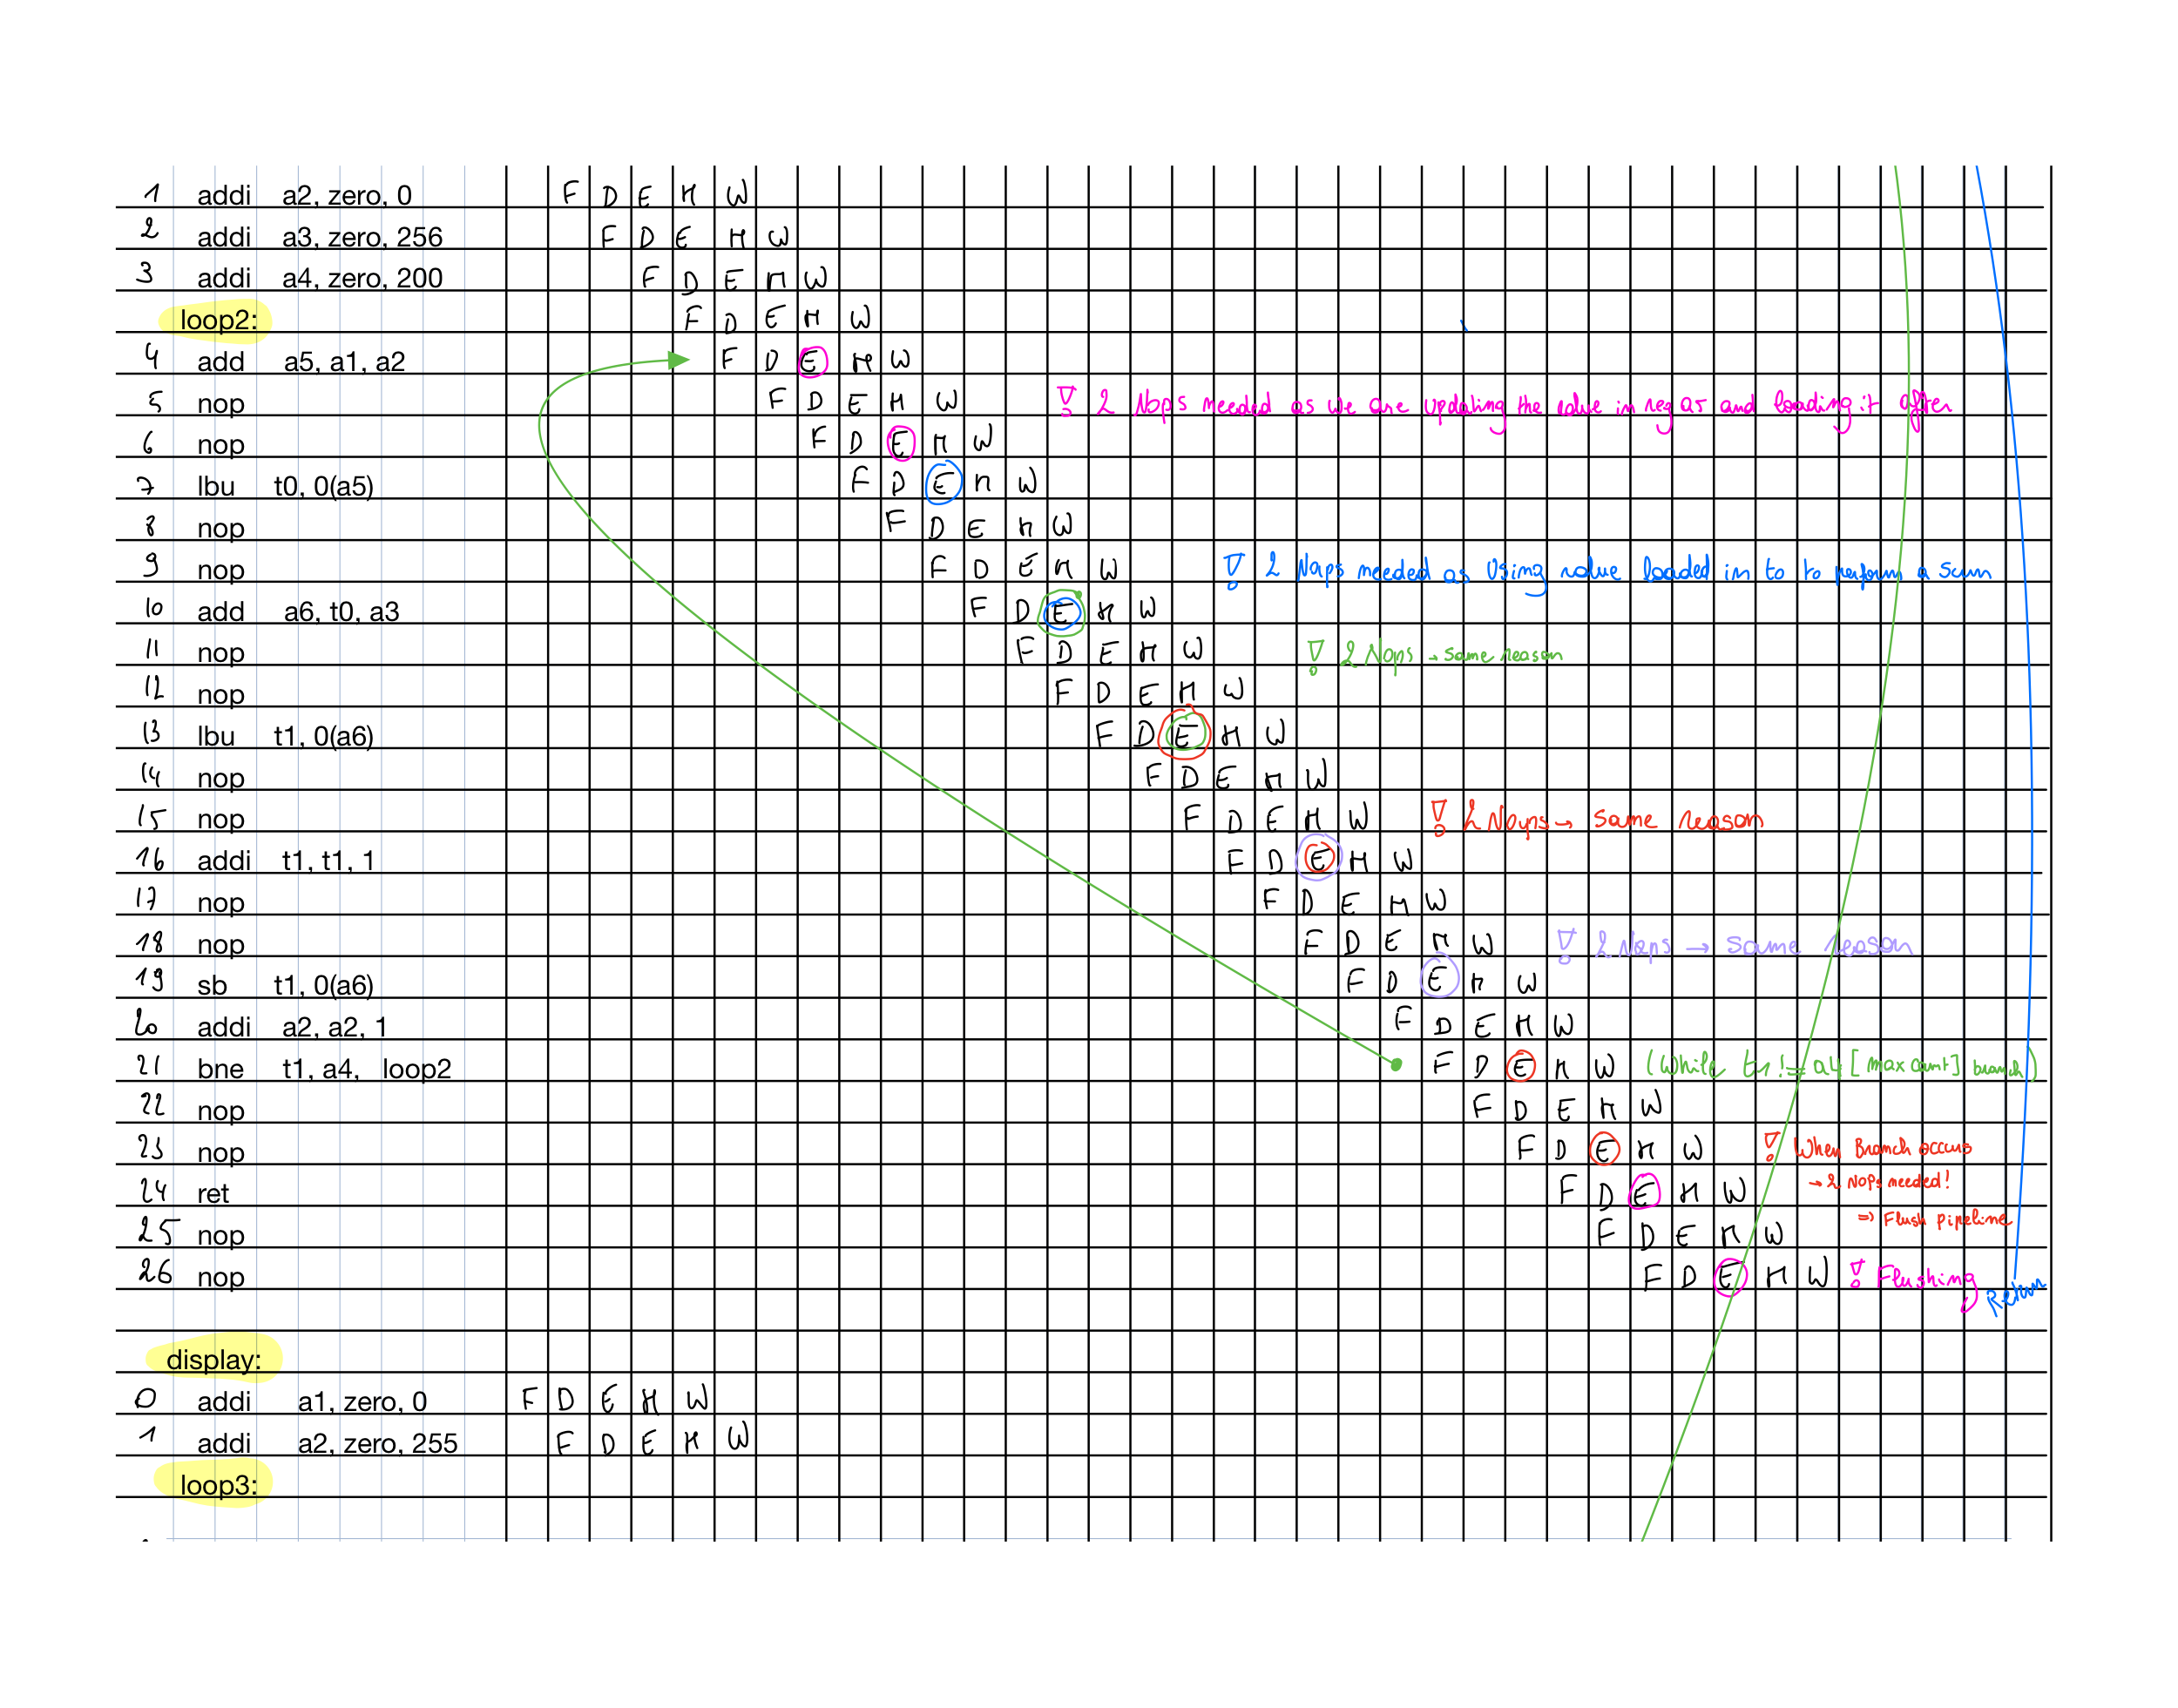 1 addi a2, zero, 0 F D E M W
2 addi a3, zero, 256 F D E M W
3 addi a4, zero, 200 F D E M W
loop2: F D E M W
4 add a5, a1, a2 F D E M W
5 nop F D E M W ! 2 Nops needed as we are updating the value in reg a5 and loading it after
6 nop F D E M W
7 lbu t0, 0(a5) F D E M W
8 nop F D E M W
9 nop F D E M W ! 2 Nops needed as Using value loaded in t0 to perform a sum
10 add a6, t0, a3 F D E M W
11 nop F D E M W ! 2 Nops → same reason
12 nop F D E M W
13 lbu t1, 0(a6) F D E M W
14 nop F D E M W
15 nop F D E M W ! 2 Noyns → same reason
16 addi t1, t1, 1 F D E M W
17 nop F D E M W
18 nop F D E M W ! 2 Nops → same reason
19 sb t1, 0(a6) F D E M W
20 addi a2, a2, 1 F D E M W
21 bne t1, a4, loop2 F D E M W (While t1 != a4 [max count] branch)
22 nop F D E M W
23 nop F D E M W ! When Branch occurs
24 ret F D E M W → 2 NOPs needed!
25 nop F D E M W => Flush pipeline
26 nop F D E M W ! Flushing Return
display:
0 addi a1, zero, 0 F D E M W
1 addi a2, zero, 255 F D E M W
loop3: